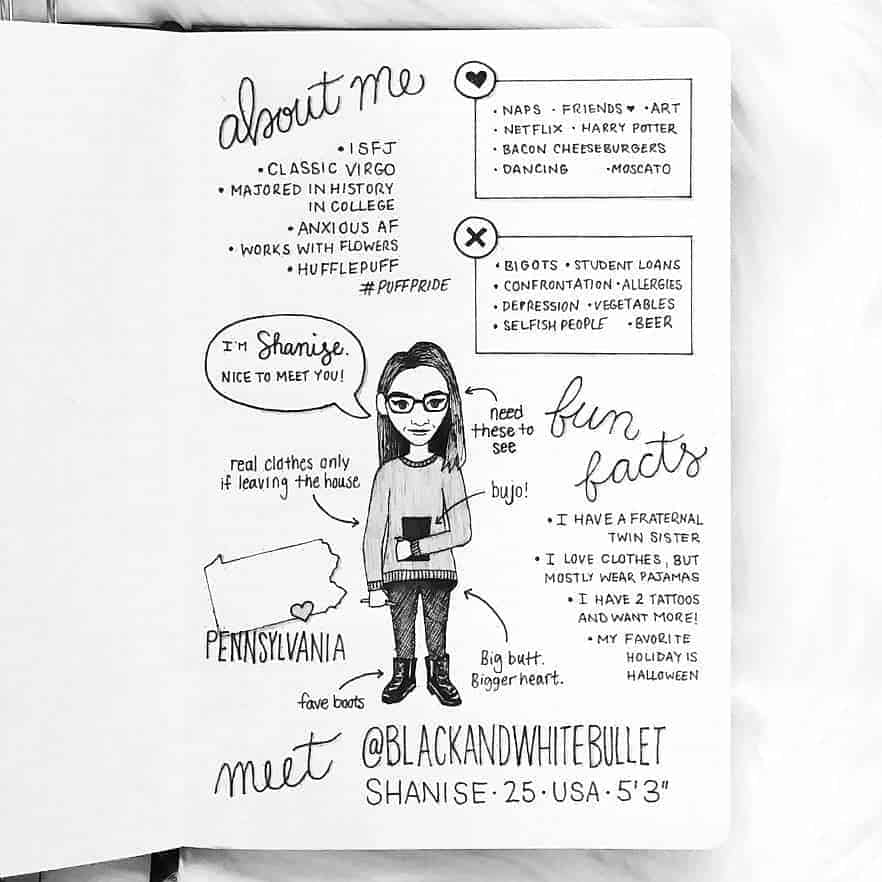 about me
• ISFJ
• CLASSIC VIRGO
• MAJORED IN HISTORY
IN COLLEGE
• ANXIOUS AF
• WORKS WITH FLOWERS
• HUFFLEPUFF
#PUFFPRIDE
• NAPS • FRIENDS ♥ • ART
• NETFLIX • HARRY POTTER
• BACON CHEESEBURGERS
• DANCING • MOSCATO
• BIGOTS • STUDENT LOANS
• CONFRONTATION • ALLERGIES
• DEPRESSION • VEGETABLES
• SELFISH PEOPLE • BEER
I'M Shanise.
NICE TO MEET YOU!
need
these to
see
real clothes only
if leaving the house
bujo!
PENNSYLVANIA
fave boots
Big butt.
Bigger heart.
fun
facts
• I HAVE A FRATERNAL
TWIN SISTER
• I LOVE CLOTHES, BUT
MOSTLY WEAR PAJAMAS
• I HAVE 2 TATTOOS
AND WANT MORE!
• MY FAVORITE
HOLIDAY IS
HALLOWEEN
meet @BLACKANDWHITEBULLET
SHANISE • 25 • USA • 5'3"